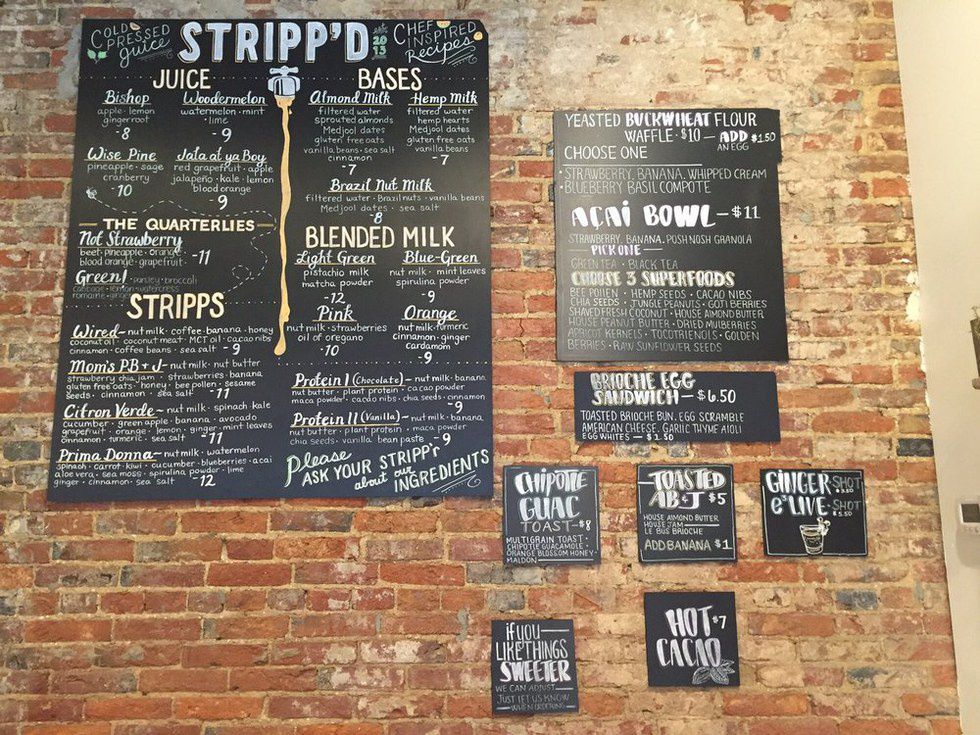 COLD
PRESSED
juice
STRIPP'D
est.
2013
CHEF
INSPIRED
Recipes
JUICE
Bishop
apple · lemon
ginger root
-8
Woodermelon
watermelon · mint
· lime
-9
Wise Pine
pineapple · sage
cranberry
-10
Jala at ya Boy
red grapefruit · apple
jalapeño · kale · lemon
blood orange
-9
THE QUARTERLIES
Not Strawberry
beet · pineapple · orange
blood orange · grapefruit · -11
Green! · parsley · broccoli
cabbage · lemon · watercress
romaine · ginger
BASES
Almond Milk
filtered water
sprouted almonds
Medjool dates
gluten free oats
vanilla beans · sea salt
cinnamon
-7
Hemp Milk
filtered water
hemp hearts
Medjool dates
gluten free oats
vanilla beans
-7
Brazil Nut Milk
filtered water · Brazil nuts · vanilla beans
Medjool dates · sea salt
-8
BLENDED MILK
Light Green
pistachio milk
matcha powder
-12
Blue-Green
nut milk · mint leaves
spirulina powder
-9
Pink
nut milk · strawberries
oil of oregano
-10
Orange
nut milk · turmeric
cinnamon · ginger
cardamom
-9
STRIPPS
Wired~ nut milk · coffee · banana · honey
coconut oil · coconut meat · MCT oil · cacao nibs
cinnamon · coffee beans · sea salt - 9
Mom's P.B + J~ nut milk · nut butter
strawberry chia jam · strawberries · banana
gluten free oats · honey · bee pollen · sesame
seeds · cinnamon · sea salt -11
Citron Verde~ nut milk · spinach · kale
cucumber · green apple · banana · avocado
grapefruit · orange · lemon · ginger · mint leaves
cinnamon · turmeric · sea salt -11
Prima Donna~ nut milk · watermelon
spinach · carrot · kiwi · cucumber · blueberries · acai
aloe vera · sea moss · spirulina powder · lime
ginger · cinnamon · sea salt -12
Protein I (Chocolate)~ nut milk · banana
nut butter · plant protein · cacao powder
maca powder · cacao nibs · chia seeds · cinnamon
-9
Protein II (Vanilla)~ nut milk · banana
nut butter · plant protein · maca powder
chia seeds · vanilla bean paste ~ 9
Please
ASK YOUR STRIPP'r
about our
INGREDIENTS
YEASTED BUCKWHEAT FLOUR
WAFFLE · $10 — ADD $1.50
AN EGG
CHOOSE ONE
· STRAWBERRY, BANANA, WHIPPED CREAM
· BLUEBERRY BASIL COMPOTE
AÇAI BOWL — $11
STRAWBERRY, BANANA, POSH NOSH GRANOLA
PICK ONE —
GREEN TEA · BLACK TEA
CHOOSE 3 SUPERFOODS
BEE POLLEN · HEMP SEEDS · CACAO NIBS
CHIA SEEDS · JUNGLE PEANUTS · GOJI BERRIES
SHAVED FRESH COCONUT · HOUSE ALMOND BUTTER
HOUSE PEANUT BUTTER · DRIED MULBERRIES
APRICOT KERNELS · TOCOTRIENOLS · GOLDEN
BERRIES · RAW SUNFLOWER SEEDS
BRIOCHE EGG
SANDWICH — $6.50
TOASTED BRIOCHE BUN, EGG SCRAMBLE
AMERICAN CHEESE, GARLIC THYME AIOLI
EGG WHITES — $1.50
CHIPOTLE
GUAC
TOAST — $8
MULTIGRAIN TOAST ·
CHIPOTLE GUACAMOLE ·
ORANGE BLOSSOM HONEY ·
MALDON
TOASTED
AB&J $5
HOUSE ALMOND BUTTER
HOUSE JAM
LE BUS BRIOCHE
ADD BANANA $1
GINGER · SHOT
e3LIVE · SHOT
$5.50
if YOU
LIKE THINGS
SWEETER
WE CAN ADJUST
JUST LET US KNOW
WHEN ORDERING
HOT $7
CACAO